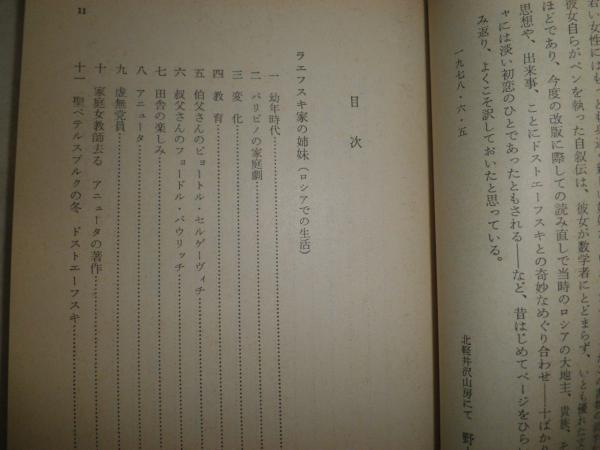 若い女性には
彼女自らがペンを執った自叙伝は、彼女が数学者にとどまらず、いとも優れた文
ほどであり、今度の改版に際しての読み直しで当時のロシアの大地主、貴族、そ
思想や、出来事、ことにドストエーフスキとの奇妙なめぐり合わせ──十ばかり
ャには淡い初恋のひとであったともされる──など、昔はじめてページをひら
み返り、よくこそ訳しておいたと思っている。
一九七八・六・五
北軽井沢山房にて 野
目次
ラエフスキ家の姉妹(ロシアでの生活)
一 幼年時代
二 パリビノの家庭劇
三 変化
四 教育
五 伯父さんのピョートル・セルゲーヴィチ
六 叔父さんのフョードル・パウリッチ
七 田舎の楽しみ
八 アニュータ
九 虚無党員
十 家庭女教師去る アニュータの著作
十一 聖ペテルスブルクの冬 ドストエーフスキ
11